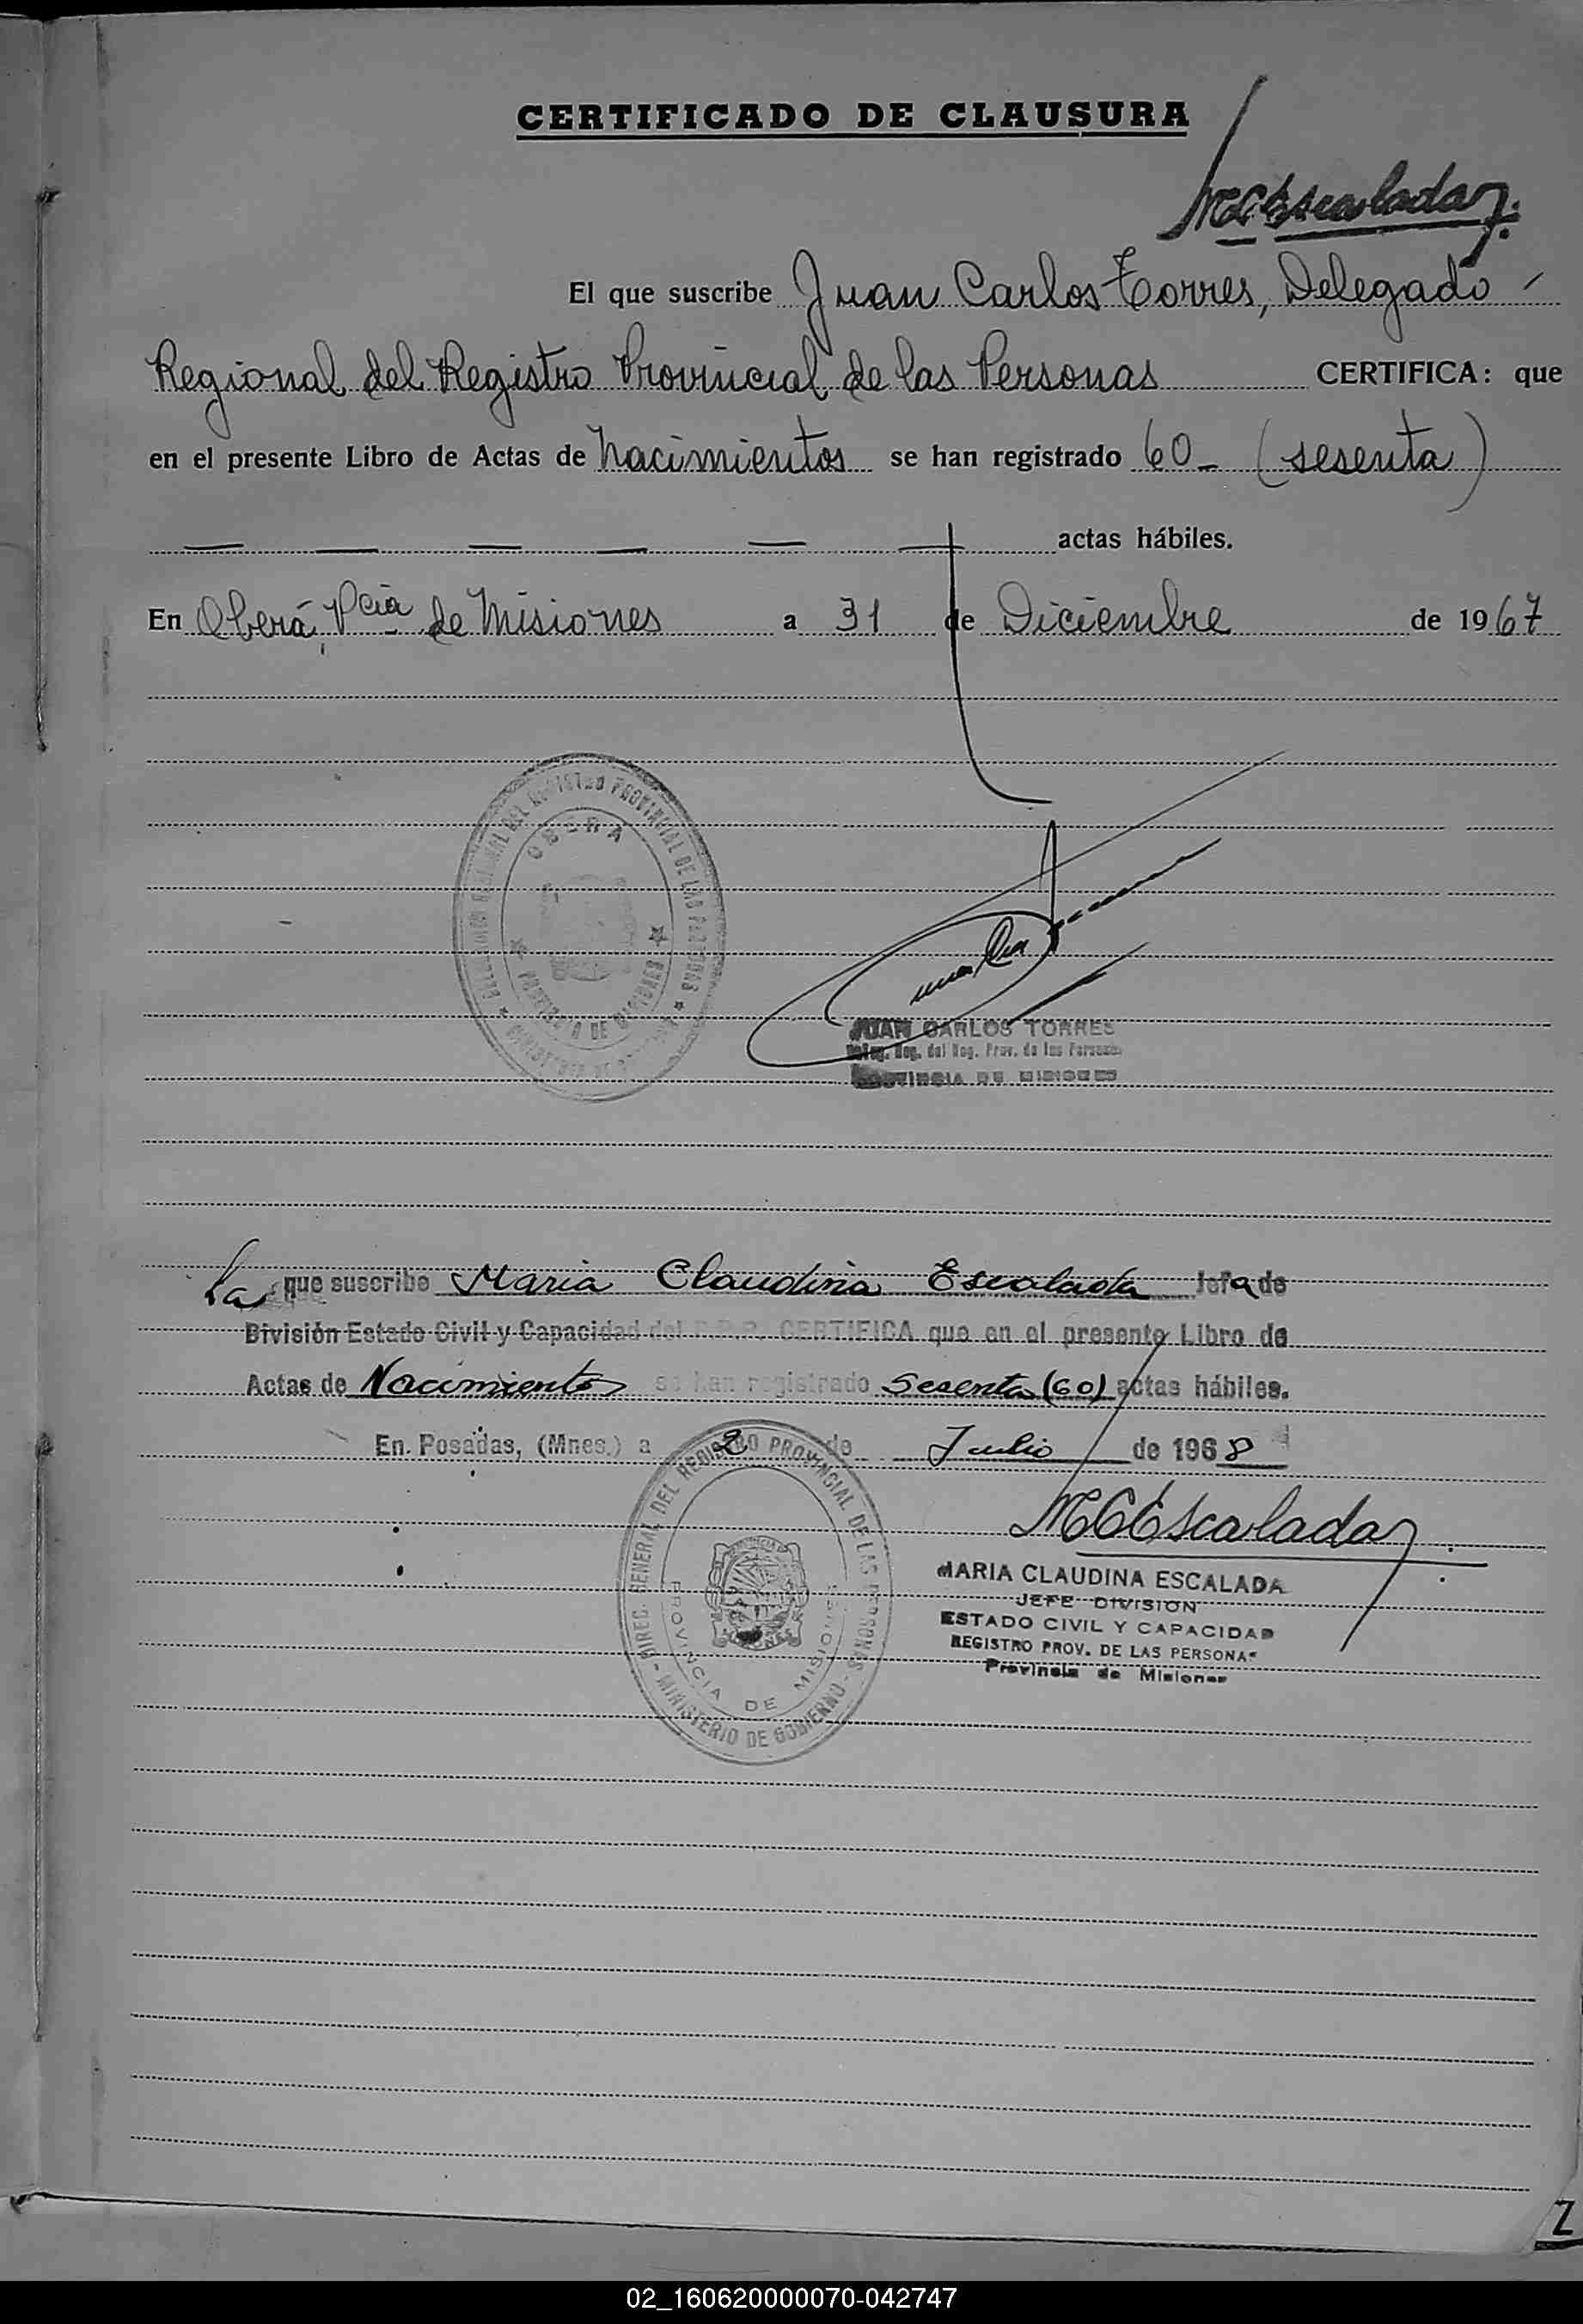 CERTIFICADO DE CLAUSURA
MCEscalada
El que suscribe Juan Carlos Torres, Delegado
Regional del Registro Provincial de las Personas CERTIFICA: que
en el presente Libro de Actas de Nacimientos se han registrado 60 - (sesenta)
— — — — — — actas hábiles.
En Oberá, Pcia de Misiones a 31 de Diciembre de 1967
DEL REGISTRO PROVINCIAL DE LAS PERSONAS
OBERA
PROVINCIA DE MISIONES
JUAN CARLOS TORRES
Deleg. Reg. del Reg. Prov. de las Personas
PROVINCIA DE MISIONES
La que suscribe Maria Claudina Escalada Jefa de
División Estado Civil y Capacidad del R.P.P. CERTIFICA que en el presente Libro de
Actas de Nacimientos se han registrado Sesenta (60) actas hábiles.
En Posadas, (Mnes.) a 2 de Julio de 1968
MCEscalada
DIREC. GENERAL DEL REGISTRO PROVINCIAL DE LAS PERSONAS - MINISTERIO DE GOBIERNO -
PROVINCIA DE MISIONES
MARIA CLAUDINA ESCALADA
JEFE DIVISION
ESTADO CIVIL Y CAPACIDAD
REGISTRO PROV. DE LAS PERSONAS
Provincia de Misiones
02_160620000070-042747